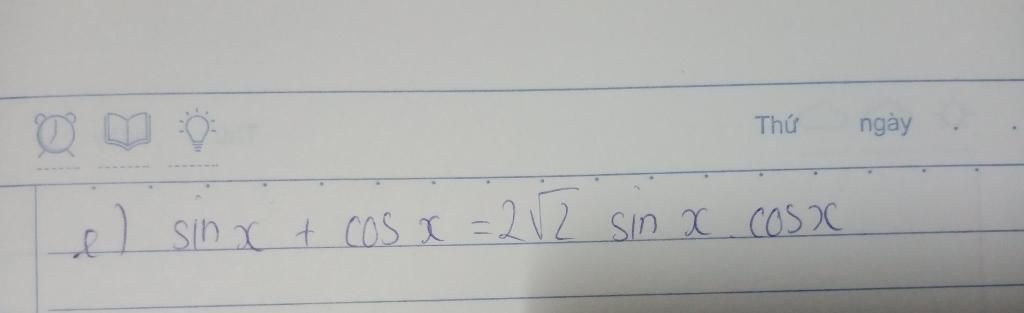 Thứ ngày
e) sin x + cos x = 2√2 sin x . cos x